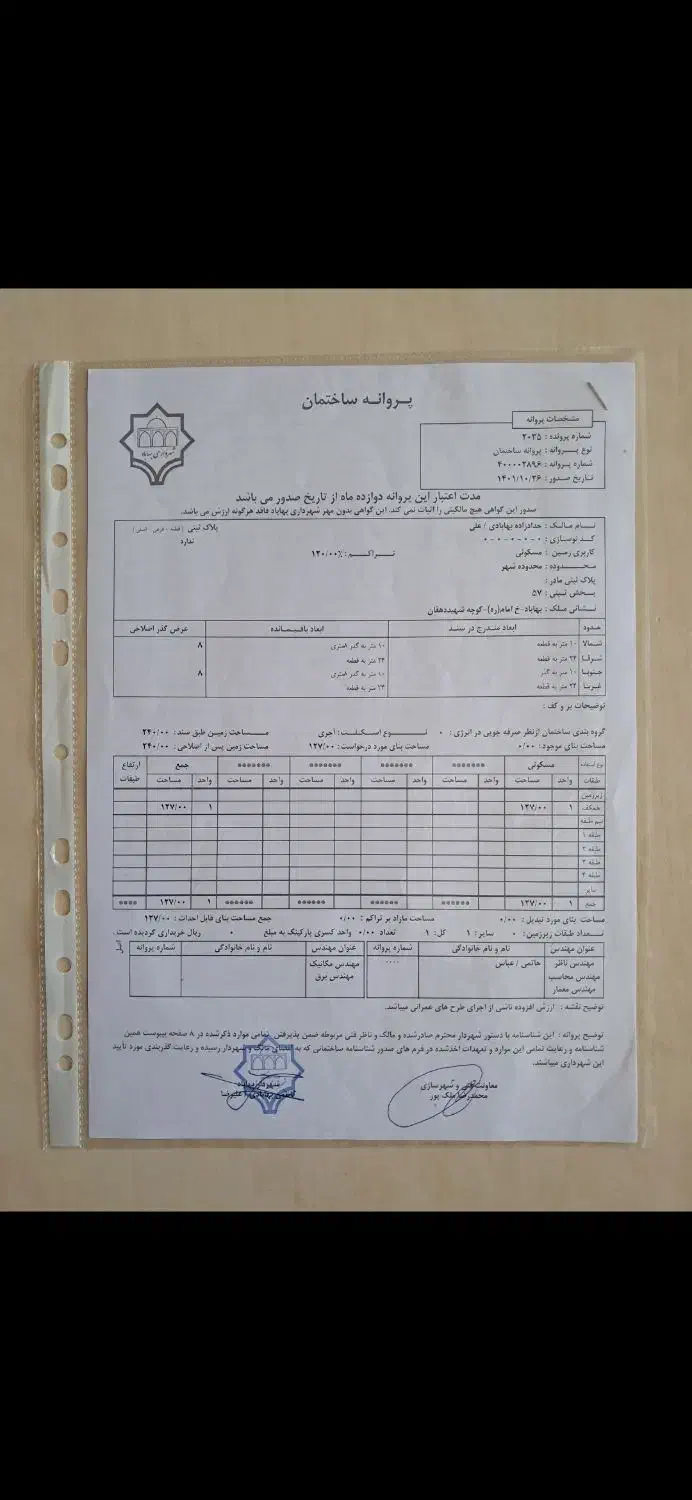 پروانه ساختمان
شهرداری بهاباد
مشخصات پروانه
شماره پرونده : ۲۰۳۵
نوع پروانه : پروانه ساختمان
شماره پروانه : ۴۰۰۰۰۲۸۹۶
تاریخ صدور : ۱۴۰۱/۱۰/۲۶
مدت اعتبار این پروانه دوازده ماه از تاریخ صدور می باشد
صدور این گواهی هیچ مالکیتی را اثبات نمی کند. این گواهی بدون مهر شهرداری بهاباد فاقد هرگونه ارزش می باشد.
نام مالک : حدادزاده بهابادی / علی پلاک ثبتی (قطعه - فرعی - اصلی)
کد نوسازی : ۰-۰-۰-۰-۰ ندارد
کاربری زمین : مسکونی تراکم : ۱۲۰/۰۰٪
محدوده : محدوده شهر
پلاک ثبتی مادر :
بخش ثبتی : ۵۷
نشانی ملک : بهاباد-خ امام(ره)-کوچه شهیددهقان
حدود ابعاد مندرج در سند ابعاد باقیمانده عرض گذر اصلاحی
شمالا ۱۰ متر به قطعه ۱۰ متر به گذر ۸متری ۸
شرقا ۲۴ متر به قطعه ۲۴ متر به قطعه
جنوبا ۱۰ متر به گذر ۱۰ متر به گذر ۸متری ۸
غربا ۲۴ متر به قطعه ۲۴ متر به قطعه
توضیحات بر و کف :
گروه بندی ساختمان ازنظر صرفه جویی در انرژی : ۰ نوع اسکلت : آجری مساحت زمین طبق سند : ۲۴۰/۰۰
مساحت بنای موجود : ۰/۰۰ مساحت بنای مورد درخواست : ۱۲۷/۰۰ مساحت زمین پس از اصلاحی : ۲۴۰/۰۰
نوع استفاده مسکونی ******* ******* ******* ******* جمع ارتفاع طبقات
طبقات واحد مساحت واحد مساحت واحد مساحت واحد مساحت واحد مساحت واحد مساحت
زیرزمین
همکف ۱ ۱۲۷/۰۰ ۱ ۱۲۷/۰۰
نیم طبقه
طبقه ۱
طبقه ۲
طبقه ۳
طبقه ۴
سایر
جمع ۱ ۱۲۷/۰۰ ****** ****** ****** ****** ۱ ۱۲۷/۰۰ ****
مساحت بنای مورد تبدیل : ۰/۰۰ مساحت مازاد بر تراکم : ۰/۰۰ جمع مساحت بنای قابل احداث : ۱۲۷/۰۰
تعداد طبقات زیرزمین : ۰ سایر : ۱ کل : ۱ تعداد ۰/۰۰ واحد کسری پارکینگ به مبلغ ۰ ریال خریداری گردیده است.
عنوان مهندس نام و نام خانوادگی شماره پروانه عنوان مهندس نام و نام خانوادگی شماره پروانه
مهندس ناظر حاتمی / عباس ۰۰۰۰ مهندس مکانیک
مهندس محاسب مهندس برق
مهندس معمار
توضیح نقشه : ارزش افزوده ناشی از اجرای طرح های عمرانی میباشد.
توضیح پروانه : این شناسنامه با دستور شهردار محترم صادرشده و مالک و ناظر فنی مربوطه ضمن پذیرفتن تمامی موارد ذکرشده در ۸ صفحه پیوست همین
شناسنامه و رعایت تمامی این موارد و تعهدات اخذشده در فرم های صدور شناسنامه ساختمانی که به امضای مالک و شهردار رسیده و رعایت گذربندی مورد تایید
این شهرداری میباشند.
معاونت فنی و شهرسازی
محمدرضا ملک پور
شهردار بهاباد
بهابادی / علیرضا